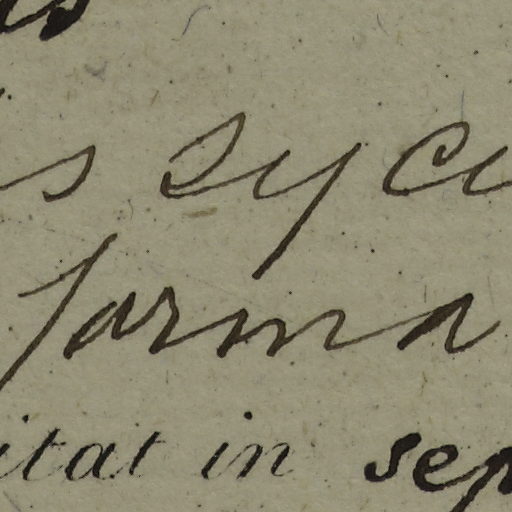 s Syc
forma
itat in sep